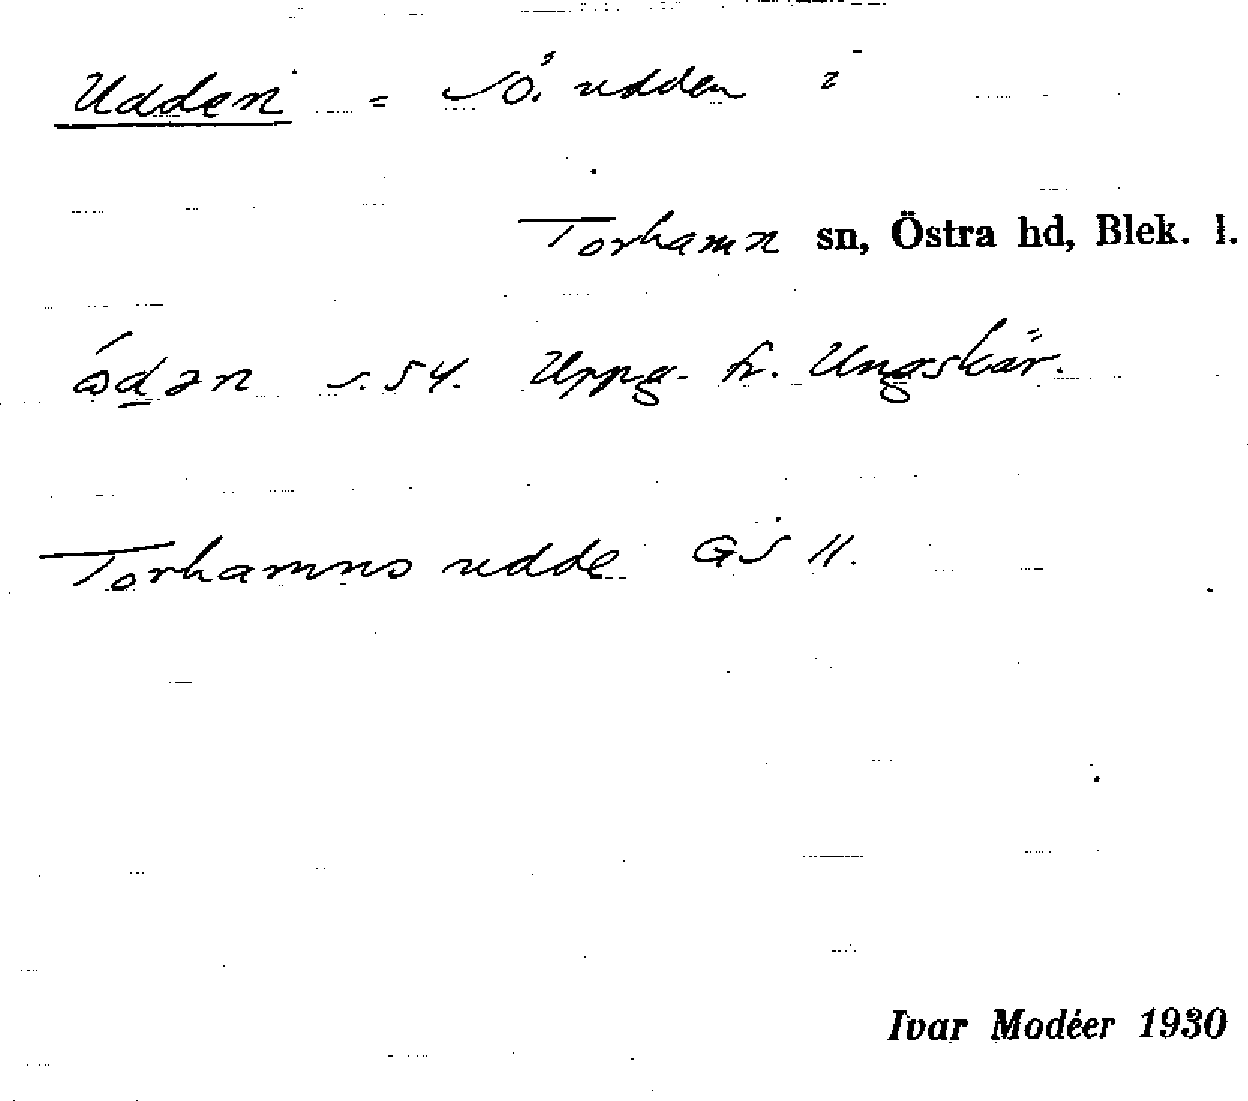 Udden = SÖ. udden i
Torhamn sn, Östra hd, Blek. l.
ódən s. 54. Uppg. fr. Ungskär.
Torhamns udde GS 11.
Ivar Modéer 1930